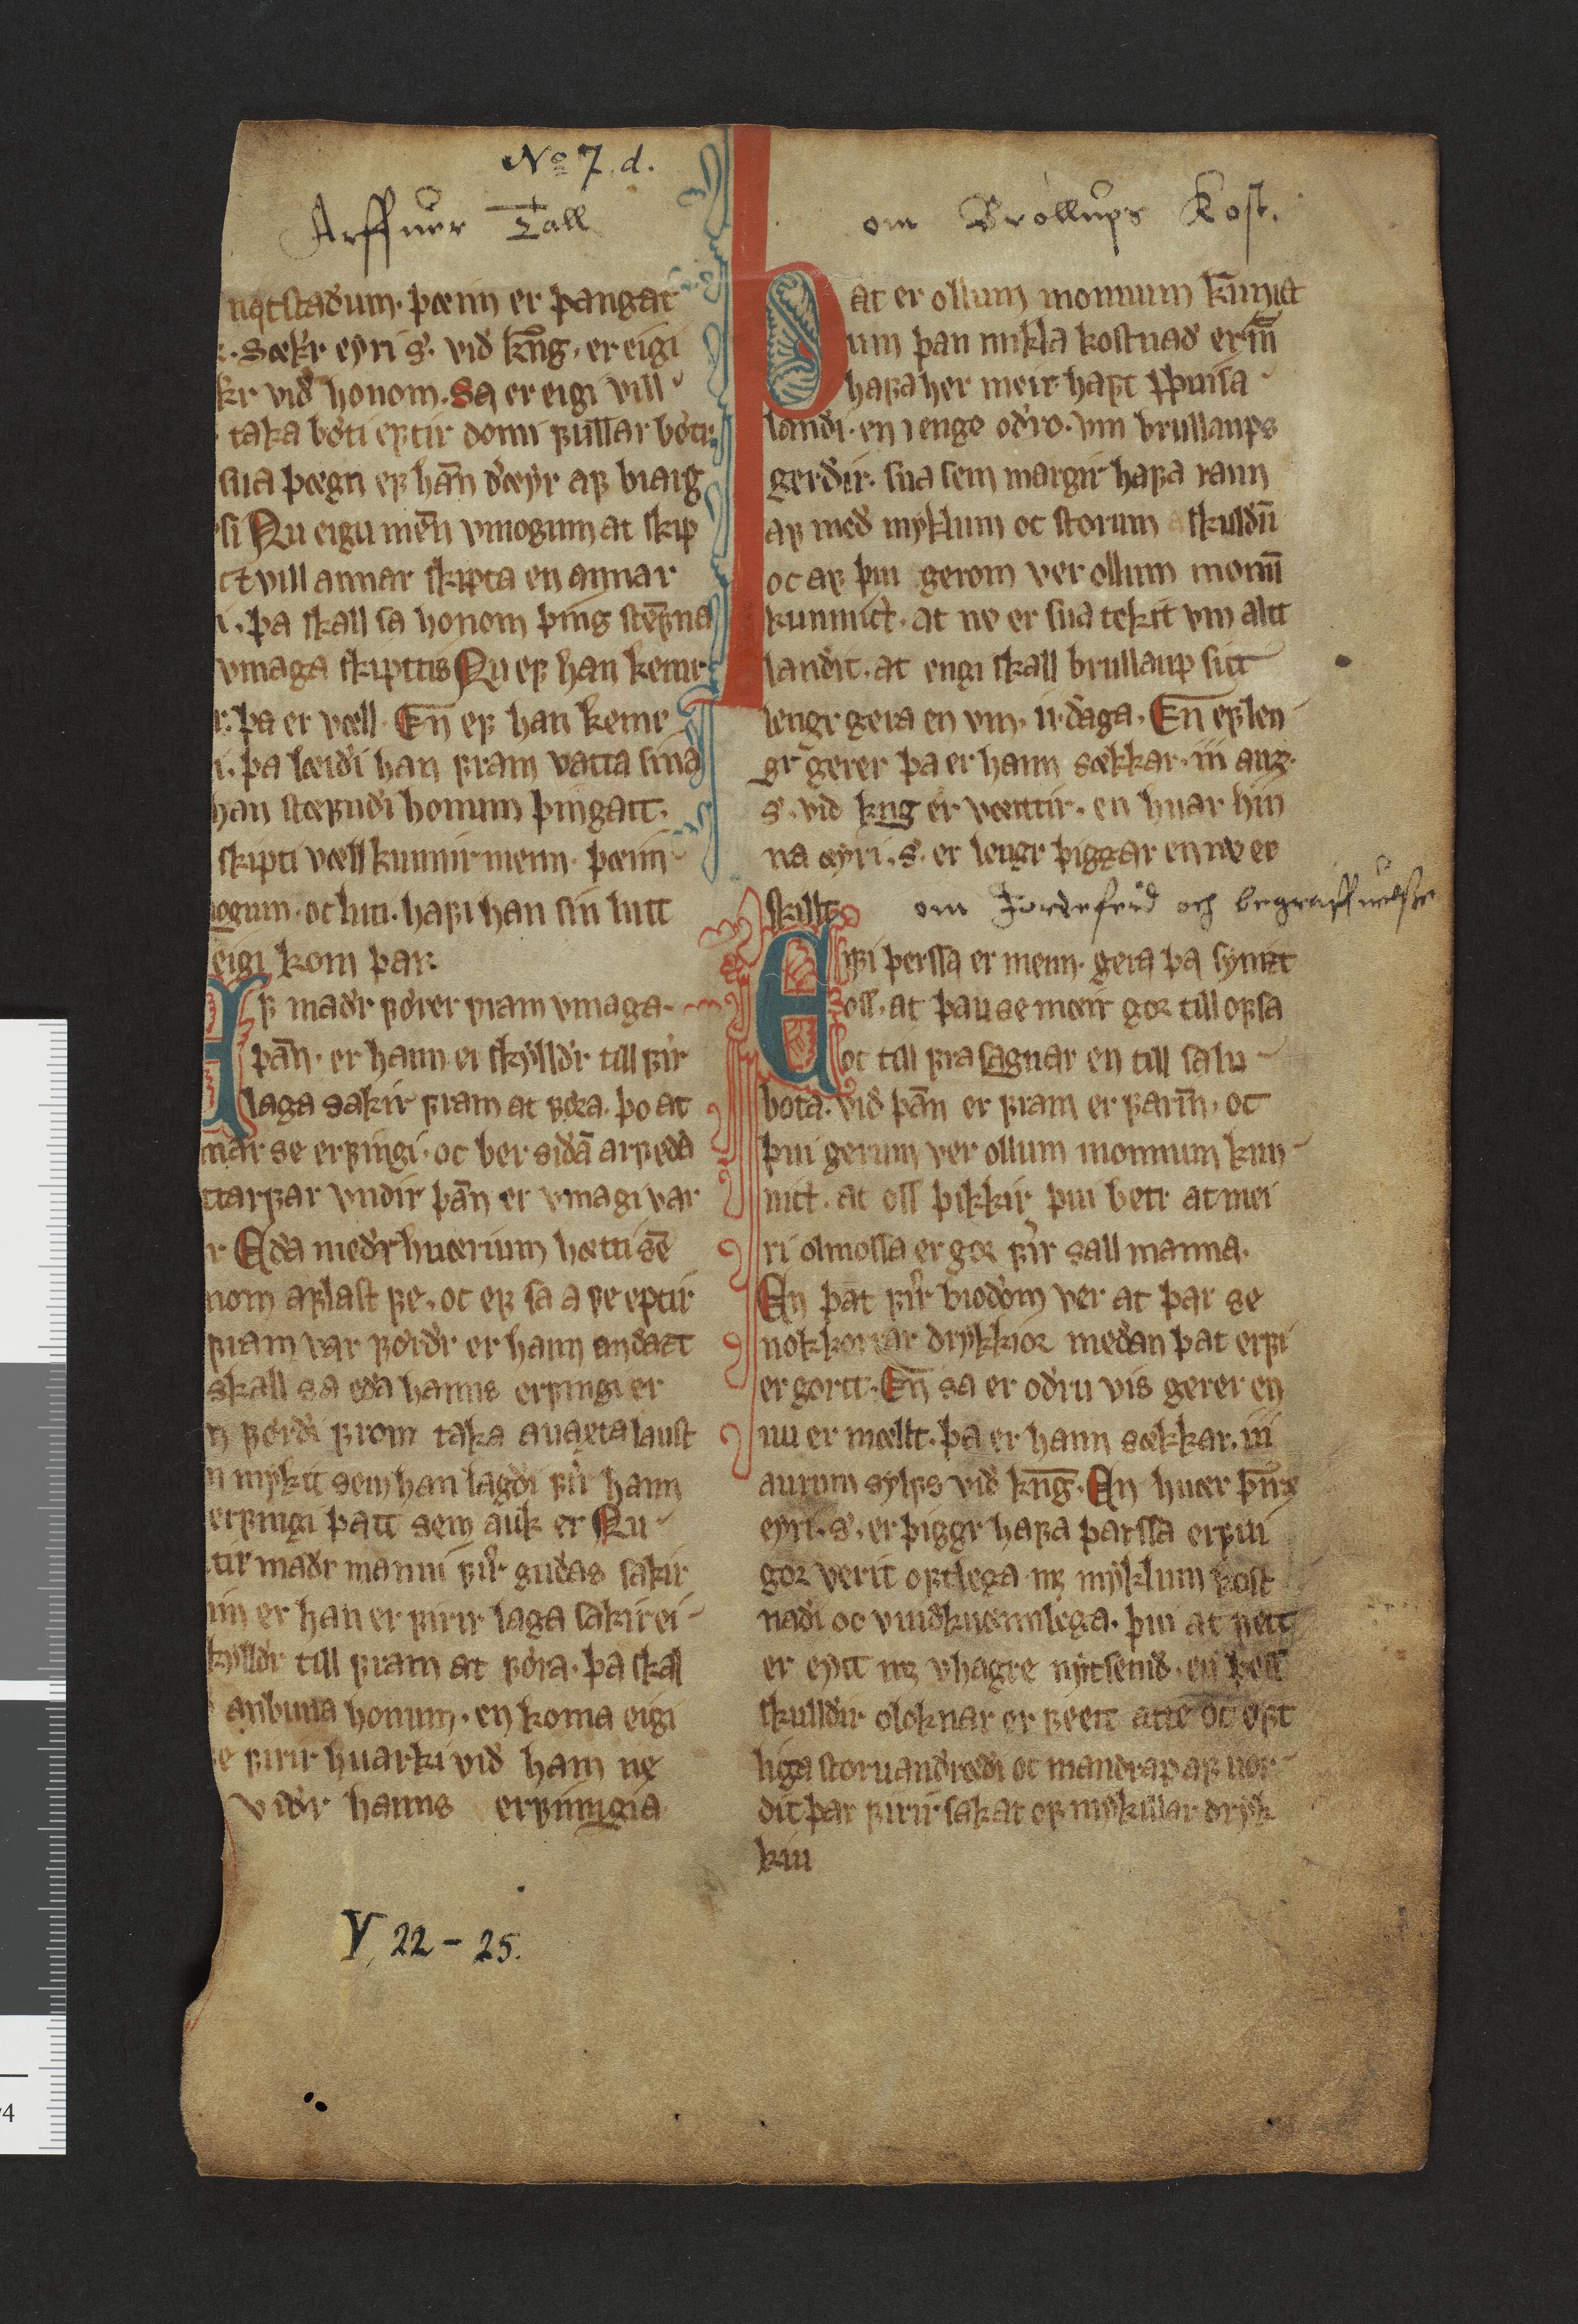 No 7. d.
Arffuer Tall
nqtstaðum. þænn er þangat
. Sækr eyri s. við kng, er eigi
kr við honom. Sa er eigi vill
taka bøti eptir domi fullar bøtr
sua þægn ef hān dæyr af biarg
si Nu eigu mēn vmogum at skip
vill annar skipta en annar
i. þa skall sa honom þing stēfna
vmaga skiptis Nu ef han kemr
r. þa er væll. En ef han kemr
i. þa læiði han fram vatta sina
han stæfndi honum þingatt.
skipti væll kunnir menn. þænn
ogum. oc luti. hafi han sin lutt
eigi kom þar.
f maðr fører fram vmaga.
þān. er hann ei skylldr till fir
laga sakir fram at føra. þo at
nar se erfingi. oc ber siðā arf eða
ttarfar vndir þān er vmagi var
r Eða með huærium hætti sē
nom aflast fe. oc ef sa a fe eptir
fram var førðr er hann andatt
skall sa eða hanns erfingi er
n førði from taka auaxtalaust
n mykit sem han lagði fir hann
erfingi þatt sem auk er Nu
tir maðr manni fir guðas sakir
im er han er firir laga sakir ei
kylldr till fram at føra. þa skal
anbuna honum. en koma eigi
e firir huarki við hann ne
viðr hanns erfinngia
V, 22-25.
om Bröllups Kost.
Þat er ollum monnum kunict
um þan mikla kostnað er mn
hafa her meir haft
landi. en i enge oðro. vm brullaups
gerðir. sua sem margir hafa rann
af með myklum oc storum skuldū
oc af þui gerom ver ollum monū
kunnict. at nv er sua tekit vm altt
landit. at engi skall brullaup sitt
lengr gera en vm. ii. daga. En ef len
gr gerer þa er hann sækkar. iii aur.
s. við kng er væittir. en huar hin
na æyri. s. er lengr þiggar en nv er
skillt
om Jordeferd och begraffuelsse
Erfi þerssa er menn. gera þa synist
oss. at þau se meir gor till ofsa
oc till frasagnar en till salu
bota. við þān er fram er farin, oc
þui gerum ver ollum monnum kun
nict. at oss þikkir þui betr at mei
ri olmossa er gor fir sall manna.
En þat fir bioðom ver at þar se
nokkorrar drykkior meðan þat erfi
er gortt. En sa er oðru vis gerer en
nu er mællt. þa er hann sækkar. iii
aurum sylfs við kng. En huær þrra
eyri. s. er þiggr hafa þarssa erfui
gor verit oftlega mz myklum kost
naði oc vuiðkuæmlega. þui at feitt
er eytt mz vhagre nytsemd. en
skulldir oloknar er feett atte oc oft
liga storuandrædi oc mandrap af uor
dit þar firir sakat of mykillar dryk
kiu